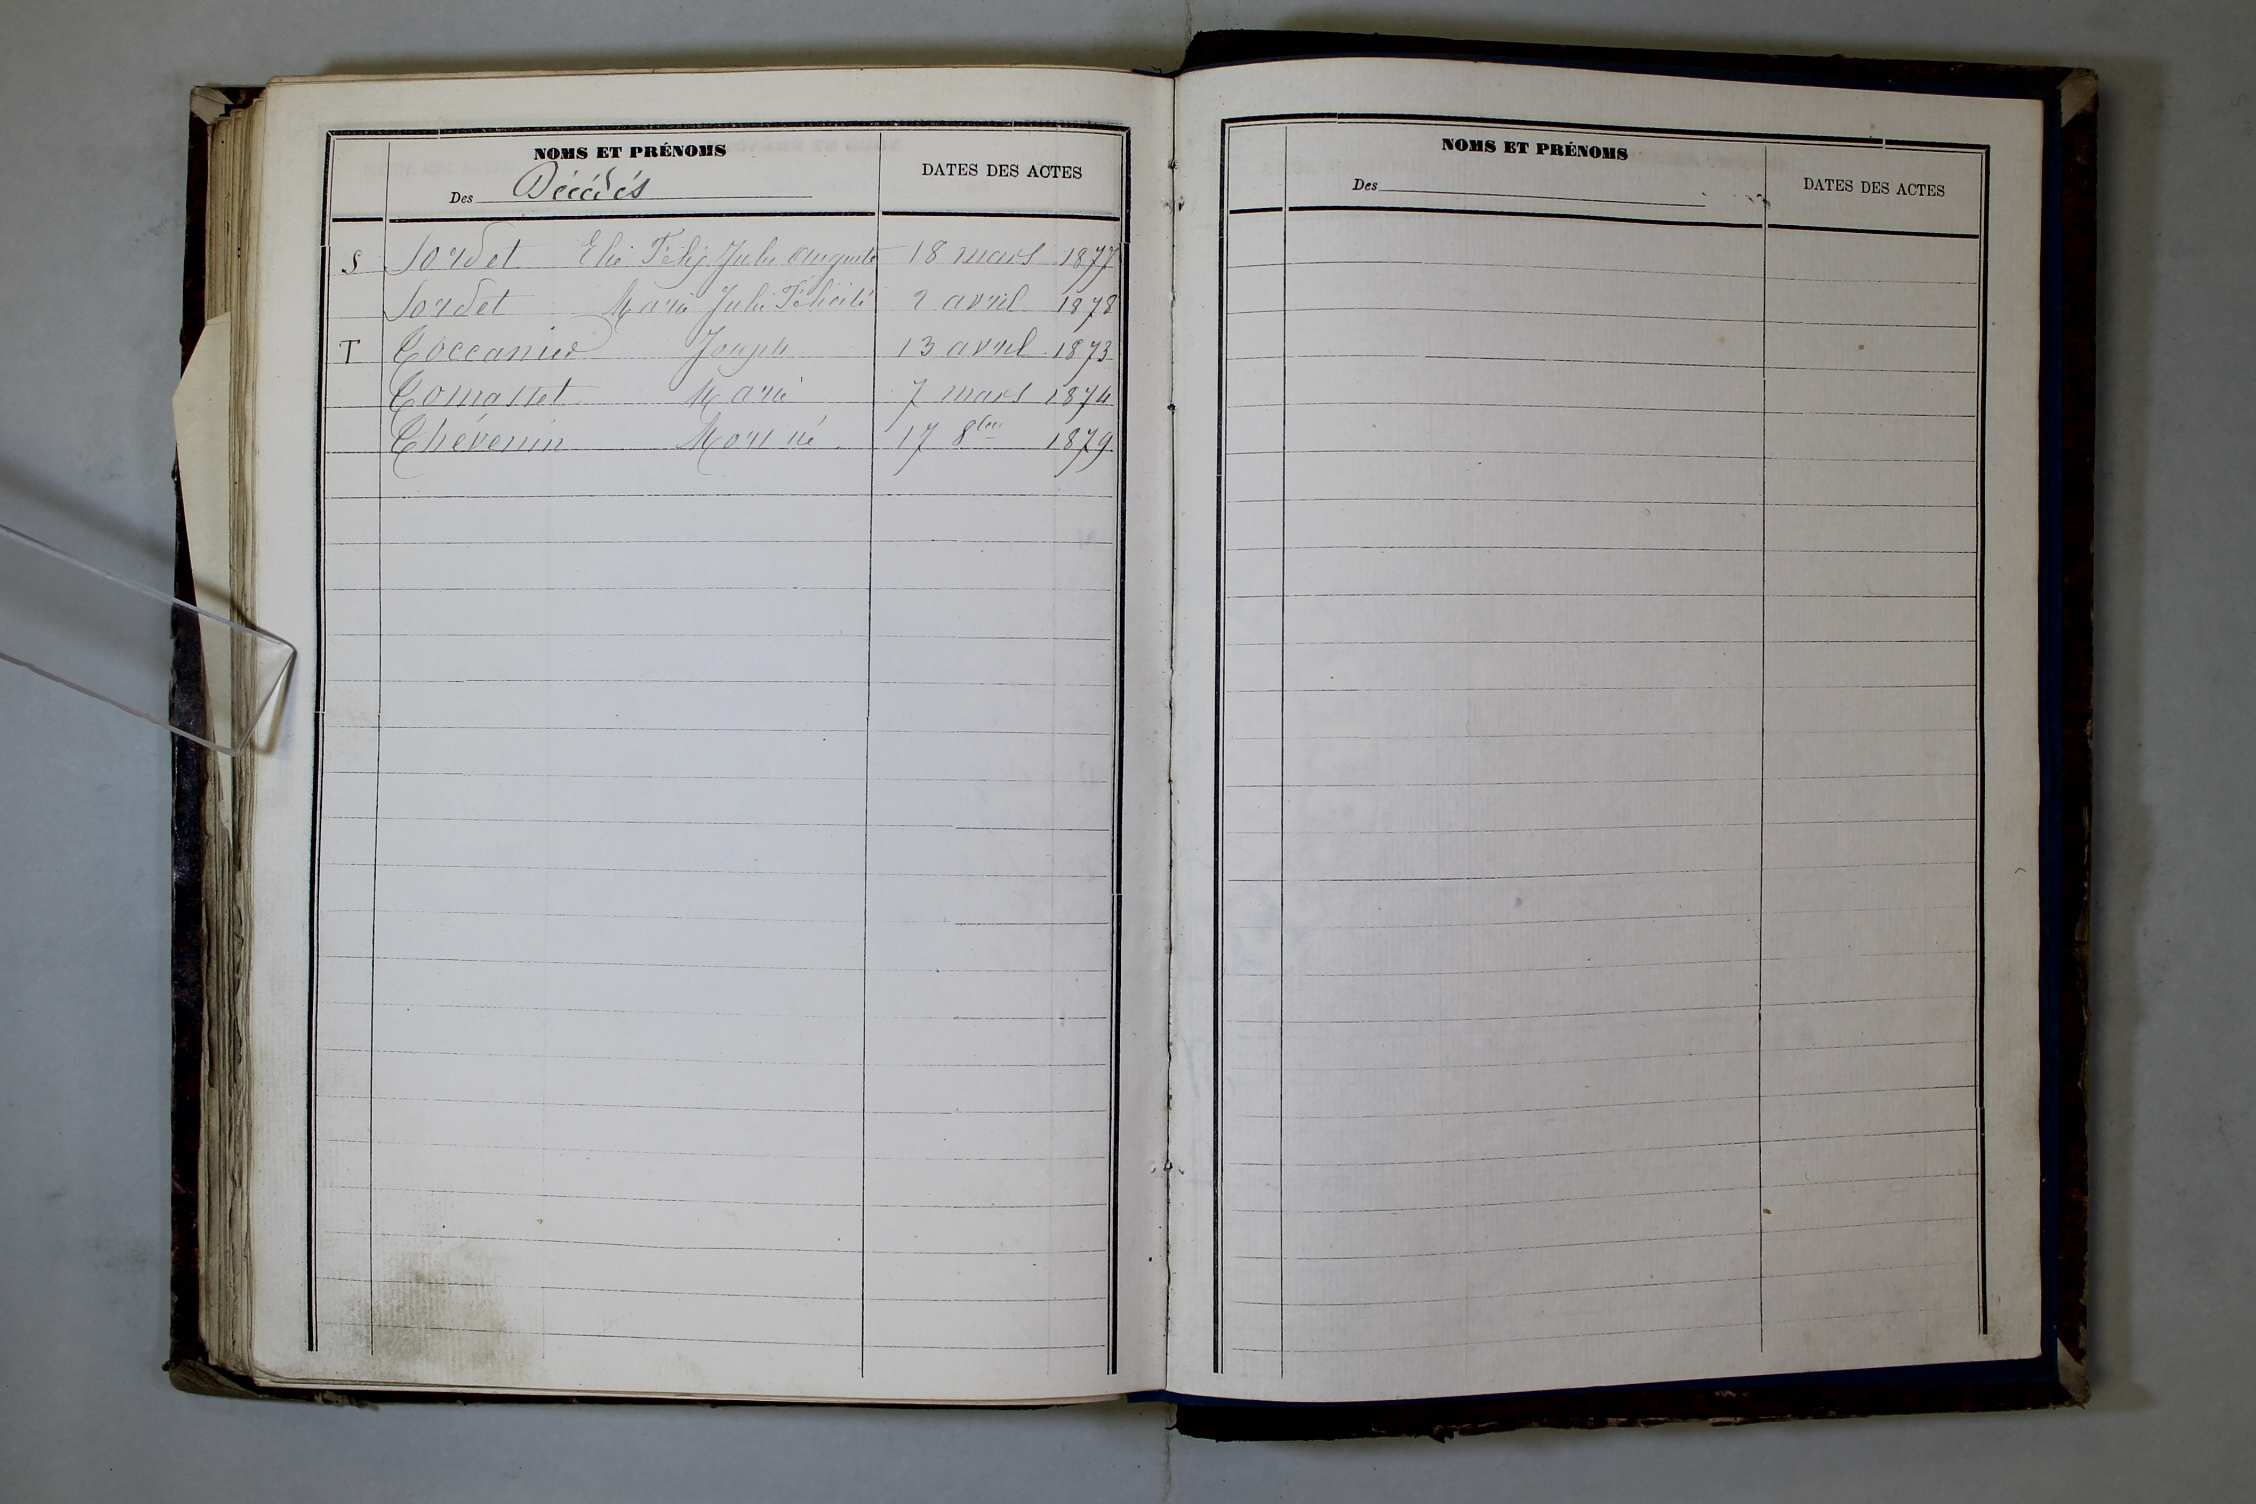 NOMS ET PRÉNOMS
DATES DES ACTES
Des Décédés
S Sordet Elie Félix Jules Auguste 18 mars 1877
Sordet Marie Julie Félicité 2 avril 1878
T Toccanier Joseph 13 avril 1873
Tomasset Marie 7 mars 1874
Thévenin Mort né 17 8bre 1879
NOMS ET PRÉNOMS
DATES DES ACTES
Des